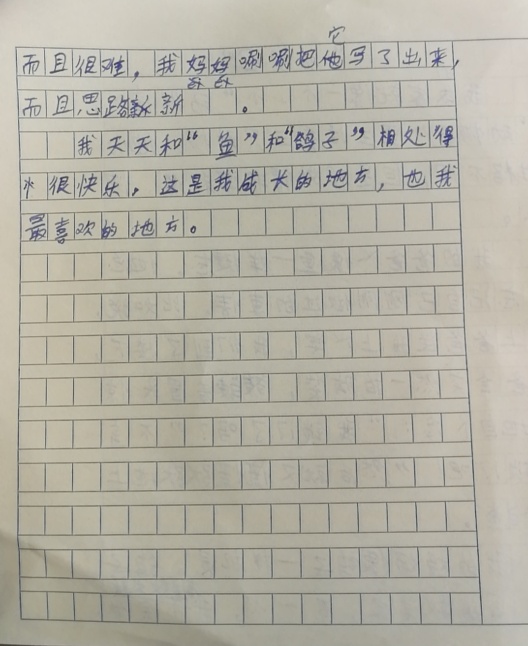 它
而且很难，我妈妈唰唰把他写了出来，
而且思路新新。
我天天和“鱼”和“鸽子”相处得
很快乐，这是我成长的地方，也我
最喜欢的地方。